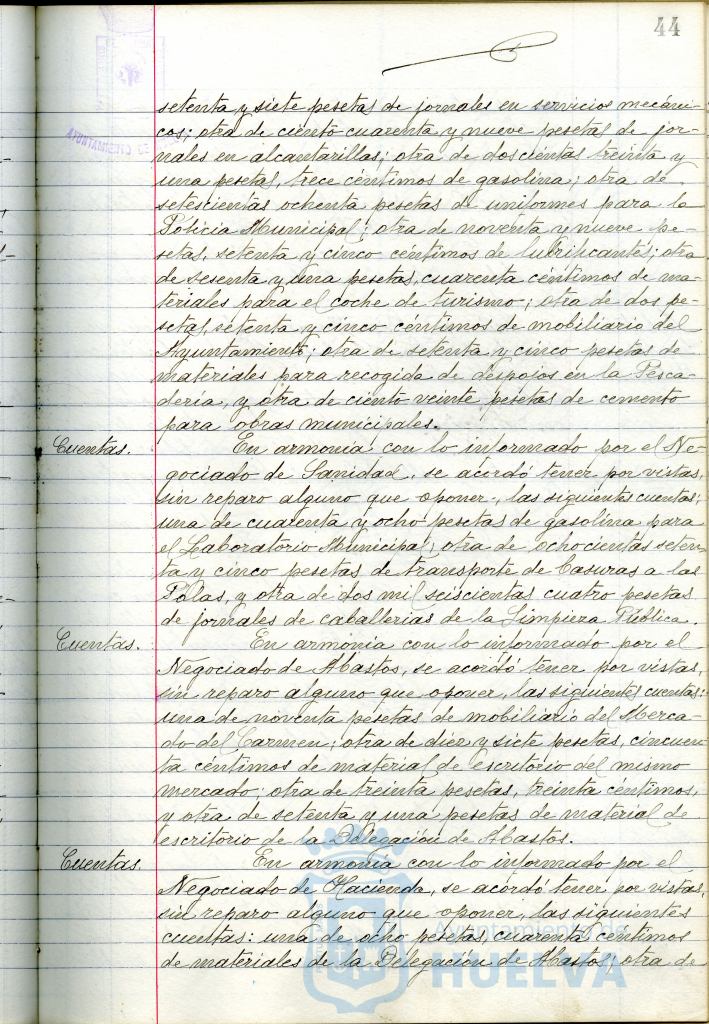 44
setenta y siete pesetas de jornales en servicios mecáni-
cos; otra de ciento cuarenta y nueve pesetas de jor-
nales en alcantarillas; otra de doscientas treinta y
una pesetas, trece céntimos de gasolina; otra de
setescientas ochenta pesetas de uniformes para la
Policia Municipal; otra de noventa y nueve pe-
setas, setenta y cinco céntimos de lubrificantes; otra
de sesenta y una pesetas, cuarenta céntimos de ma-
teriales para el coche de turismo; otra de dos pe-
setas, setenta y cinco céntimos de mobiliario del
Ayuntamiento; otra de setenta y cinco pesetas de
materiales para recogida de despojos en la Pesca-
deria, y otra de ciento veinte pesetas de cemento
para obras municipales.
Cuentas. En armonía con lo informado por el Ne-
gociado de Sanidad, se acordó tener por vistas,
sin reparo alguno que oponer, las siguientes cuentas;
una de cuarenta y ocho pesetas de gasolina para
el Laboratorio Municipal; otra de ochocientas seten-
ta y cinco pesetas de transporte de basuras a las
Polas, y otra de dos mil seiscientas cuatro pesetas
de jornales de caballerias de la Limpieza Pública.
Cuentas. En armonía con lo informado por el
Negociado de Abastos, se acordó tener por vistas,
sin reparo alguno que oponer, las siguientes cuentas:
una de noventa pesetas de mobiliario del Merca-
do del Carmen; otra de diez y siete pesetas, cincuen-
ta céntimos de material de escritorio del mismo
mercado; otra de treinta pesetas, treinta céntimos,
y otra de setenta y una pesetas de material de
escritorio de la Delegación de Abastos.
Cuentas. En armonía con lo informado por el
Negociado de Hacienda, se acordó tener por vistas,
sin reparo alguno que oponer, las siguientes
cuentas: una de ocho pesetas, cuarenta céntimos
de materiales de la Delegación de Abastos; otra de
AYUNTAMIENTO DE
Ayuntamiento de
HUELVA